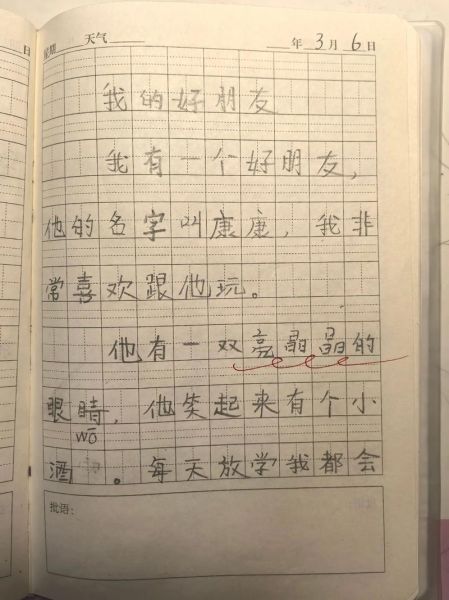 日 星期 天气 年 3 月 6 日
我的好朋友
我有一个好朋友，
他的名字叫康康，我非
常喜欢跟他玩。
他有一双亮晶晶的
眼睛，他笑起来有个小
wō
酒 。每天放学我都会
批语：